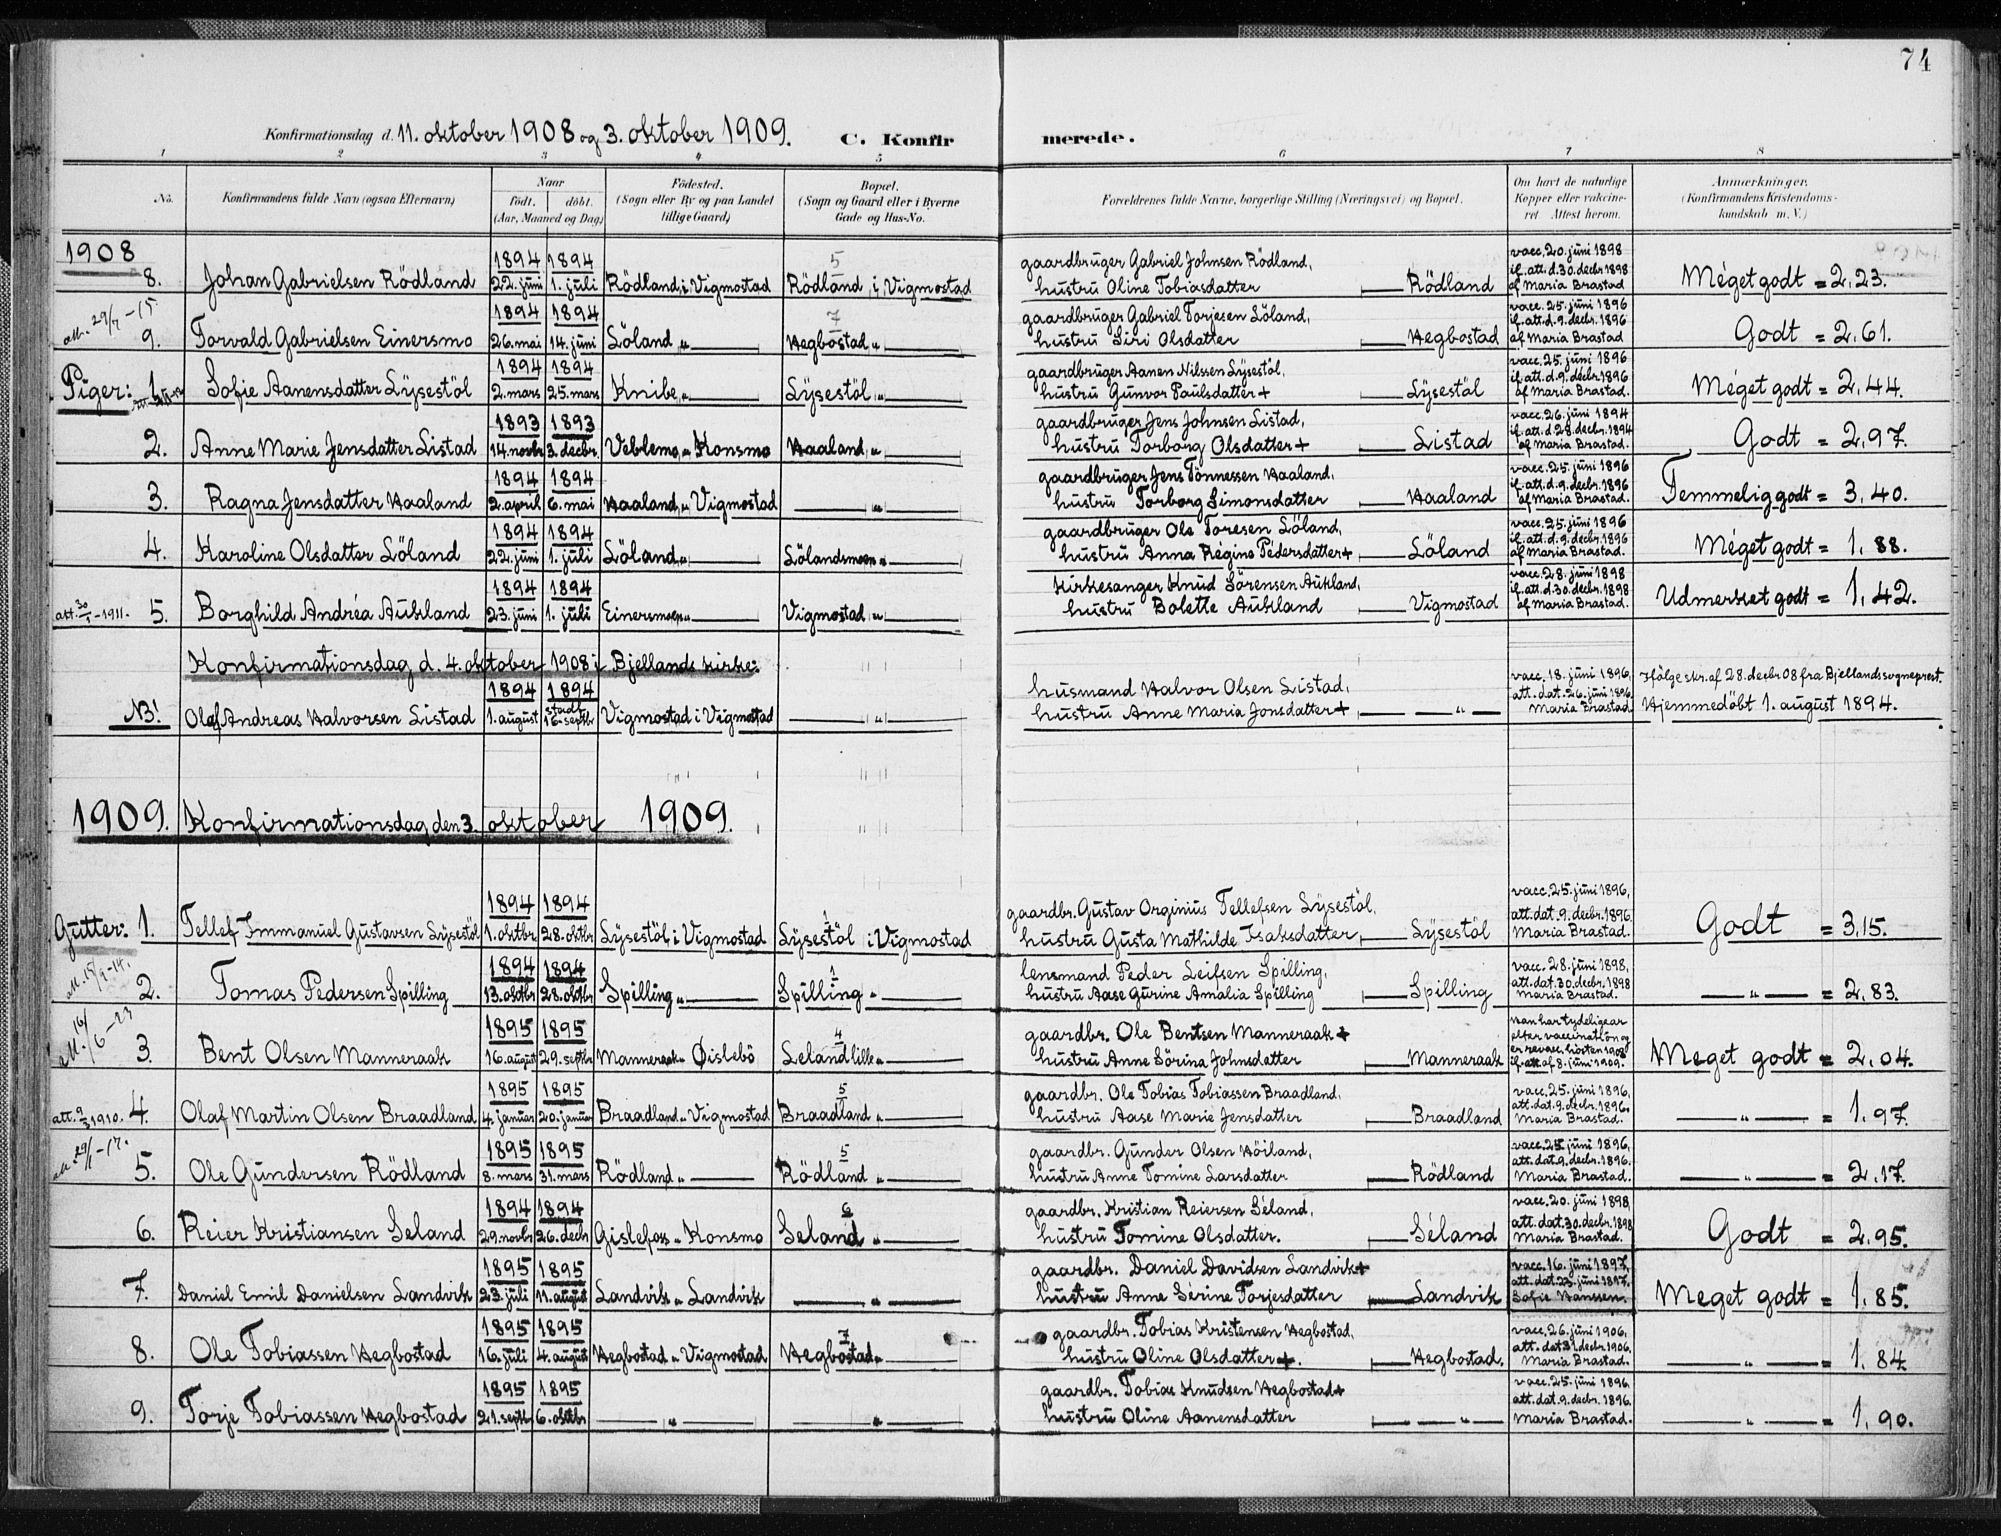 74
Konfirmationsdag d. 11. oktober 1908 og 3. oktober 1909. C. Konfir merede.
1 2 3 4 5 6 7 8
No. Konfirmandens fulde Navn (ogsaa Efternavn) Naar født. døbt. (Aar, Maaned og Dag) Fødested. (Sogn eller By og paa Landet tillige Gaard) Bopæl. (Sogn og Gaard eller i Byerne Gade og Hus-No. Forældrenes fulde Navne, borgerlige Stilling (Næringsvei) og Bopæl. Om havt de naturlige Kopper eller vakcineret. Attest herom. Anmærkninger. (Konfirmandens Kristendomskundskab m. V.)
1908
8. Johan Gabrielsen Rödland 1894 22. juni 1894 1. juli Rödland i Vigmostad 5 Rödland i Vigmostad gaardbruger Gabriel Johnsen Rödland, hustru Oline Tobiasdatter Rödland vacc. 20. juni 1898 if. att. d. 30. decbr 1898 af Maria Brastad Méget godt = 2,23.
att. 29/7 - 15
9. Torvald Gabrielsen Einersmo 1894 26. mai 1894 14. juni Löland " 7 Hegbostad " gaardbruger Gabriel Torjesen Löland, hustru Siri Olsdatter Hegbostad vacc. 25. juni 1896 if. att. d. 9. decbr. 1896 af Maria Brastad Godt = 2,61.
Piger: 1. Sofie Aanensdatter Lÿsestöl 1894 2. mars 1894 25. mars Knibe " Lÿsestöl " gaardbruger Aanen Nilssen Lÿsestöl, hustru Gunvor Paulsdatter + Lÿsestöl vacc. 25. juni 1896 if. att. d. 9. decbr. 1896 af Maria Brastad. Méget godt = 2,44.
2. Anne Marie Jensdatter Listad 1893 14. novbr 1893 3. decbr. Veblemo " Konsmo Haaland " gaardbruger Jens Johnsen Listad, hustru Torborg Olsdatter + Listad vacc. 26. juni 1894 if. att. d. 28. decbr. 1894 af Maria Brastad. Godt = 2,97.
3. Ragna Jensdatter Haaland 1894 2. april 1894 6. mai Haaland " Vigmostad " gaardbruger Jens Tönnessen Haaland, hustru Torborg Simonsdatter Haaland vacc. 25. juni 1896 if. att. d. 9. decbr. 1896 af Maria Brastad. Temmelig godt = 3,40.
4. Karoline Olsdatter Löland 1894 22. juni 1894 1. juli Löland " Lölandsmoen " gaardbruger Ole Toresen Löland, hustru Anna Régine Pedersdatter + Löland vacc. 25. juni 1896 if. att. d. 9. decbr. 1896 af Maria Brastad. Méget godt = 1,88.
att. 30/5 - 1911. 5. Borghild Andréa Aukland 1894 23. juni 1894 1. juli Einersmoen " Vigmostad " Kirkesanger Knud Sörensen Aukland, hustru Bolette Aukland Vigmostad vacc. 28. juni 1898 if. att. d. 30. decbr. 1898 af Maria Brastad. Udmerket godt = 1,42.
Konfirmationsdag d. 4. oktober 1908 i Bjellands kirke:
NB! Olaf Andreas Halvorsen Listad 1894 1. august 1894 stadf. 16. septbr Vigmostad i Vigmostad " husmand Halvor Olsen Listad, hustru Anne Maria Jonsdatter + " vacc. 18. juni 1896, att. dat. 26. juni 1896 Maria Brastad. Ifölge skr. af 28. decbr 08 fra Bjellands sogneprest. Hjemmedöbt 1. august 1894.
1909. Konfirmationsdag den 3. oktober 1909.
Gutter: 1. Tellef Immanuel Gustavsen Lÿsestöl 1894 1. oktbr 1894 28. oktbr Lÿsestöl i Vigmostad 1 Lÿsestöl i Vigmostad gaardbr. Gustav Orginius Tellefsen Lÿsestöl, hustru Gusta Mathilde Isaksdatter Lÿsestöl vacc. 25. juni 1896, att. dat. 9. decbr. 1896. Maria Brastad. Godt = 3,15.
2. Tomas Pedersen Spilling 1894 13. oktbr 1894 28. oktbr Spilling " 1 Spilling " lensmand Peder Leifsen Spilling, hustru Aase Gurine Amalia Spilling Spilling vacc. 28. juni 1898, att. dat. 30. decbr. 1898 Maria Brastad. " = 2,83.
att. 16/6 - 23
3. Bent Olsen Manneraak 1895 16. august 1895 29. septbr Manneraak " Øislebö 4 Leland lille " gaardbr. Ole Bentsen Manneraak + hustru Anne Sörina Johnsdatter Manneraak Han har tydelige ar efter vaccination og er revacc. hösten 1908 if. att. af 8. juni 1909. Meget godt = 2,04.
att. 9/3 1910. 4. Olaf Martin Olsen Braadland 1895 4. januar 1895 20. januar Braadland " Vigmostad 5 Braadland " gaardbr. Ole Tobias Tobiassen Braadland, hustru Aase Marie Jensdatter Braadland vacc. 25. juni 1896, att. dat. 9. decbr. 1896. Maria Brastad. " = 1,97.
att. 29/1 - 17.
5. Ole Gundersen Rödland 1895 8. mars 1895 31. mars Rödland " 5 Rödland " gaardbr. Gunder Olsen Höiland, hustru Anne Tomine Larsdatter Rödland vacc. 25. juni 1896, att. dat. 9. decbr. 1896. Maria Brastad. " = 2,17.
6. Reier Kristiansen Seland 1894 29. novbr 1894 26. decbr Gislefoss " Konsmo 6 Seland " gaardbr. Kristian Reiersen Séland, hustru Tomine Olsdatter. Séland vacc. 20. juni 1898, att. dat. 30. decbr. 1898 Maria Brastad. Godt = 2,95.
7. Daniel Emil Danielsen Landvik 1895 23. juli 1895 11. august Landvik " Landvik " gaardbr. Daniel Davidsen Landvik + hustru Anne Serine Torjesdatter Landvik vacc. 16. juni 1897, att. dat. 23. juni 1897. Sofie Hanssen. Meget godt = 1,85.
8. Ole Tobiassen Hegbostad 1895 16. juli 1895 4. august Hegbostad " Vigmostad 7 Hegbostad " gaardbr. Tobias Kristensen Hegbostad, hustru Oline Olsdatter +. Hegbostad. vacc. 26. juni 1906, att. dat. 31. decbr. 1906. Maria Brastad. " = 1,84
9. Torje Tobiassen Hegbostad 1895 21. septbr 1895 6. oktbr " " gaardbr. Tobias Knudsen Hegbostad + hustru Oline Aanensdatter " vacc. 25. juni 1896 att. dat. 9. decbr. 1896. Maria Brastad. " = 1,90.